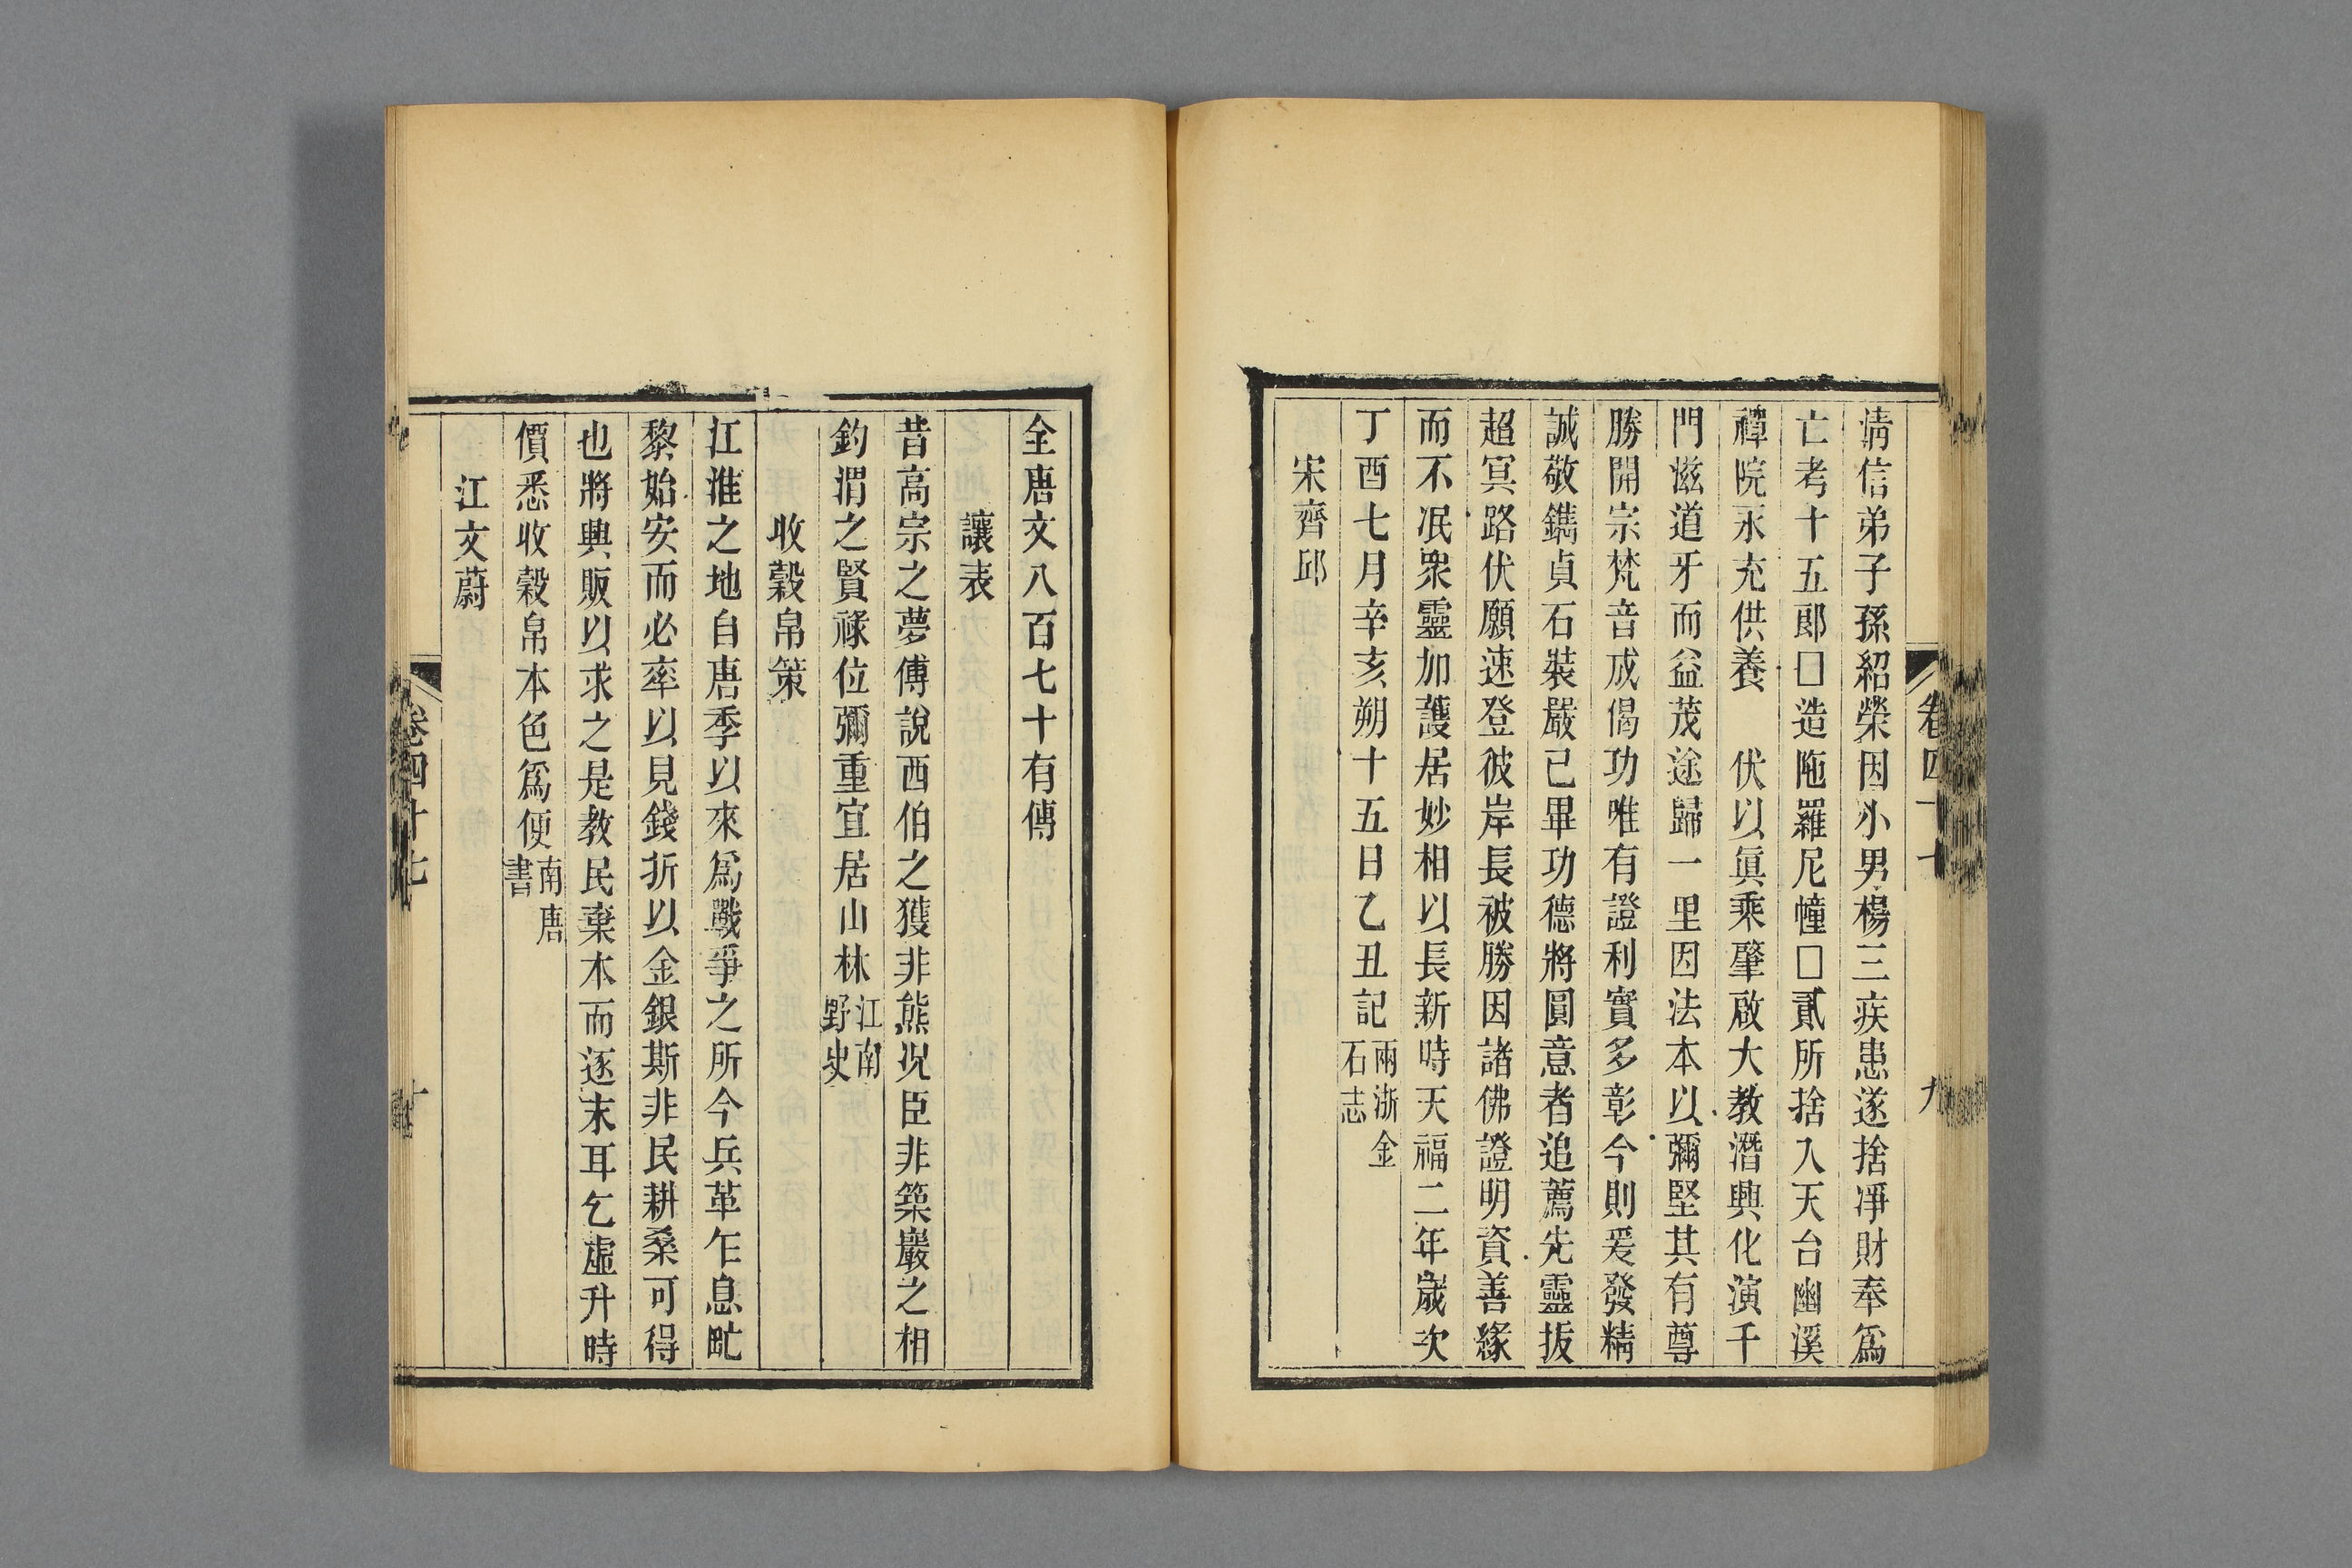 清信弟子孫紹榮因小男楊三疾患遂捨淨財奉爲
亡考十五郞□造陁羅尼幢□貳所捨入天台幽溪
禪院永充供養　伏以眞乘肇啟大教潛興化演千
門滋道牙而益茂途歸一里因法本以彌堅其有尊
勝開宗梵音成偈功唯有證利實多彰今則爰發精
誠敬鐫貞石裝嚴已畢功德將圓意者追薦先靈拔
超冥路伏願速登彼岸長被勝因諸佛證明資善緣
而不泯衆靈加護居妙相以長新時天福二年歲次
丁酉七月辛亥朔十五日乙丑記兩浙金石志
宋齊邱
卷四十七
九
全唐文八百七十有傳
讓表
昔高宗之夢傅說西伯之獲非熊况臣非築巖之相
釣渭之賢祿位彌重宜居山林江南野史
收穀帛策
江淮之地自唐季以來爲戰爭之所今兵革乍息甿
黎始安而必率以見錢折以金銀斯非民耕桑可得
也將興販以求之是教民棄本而逐末耳乞虛升時
價悉收穀帛本色爲便南唐書
江文蔚
卷四十七
十